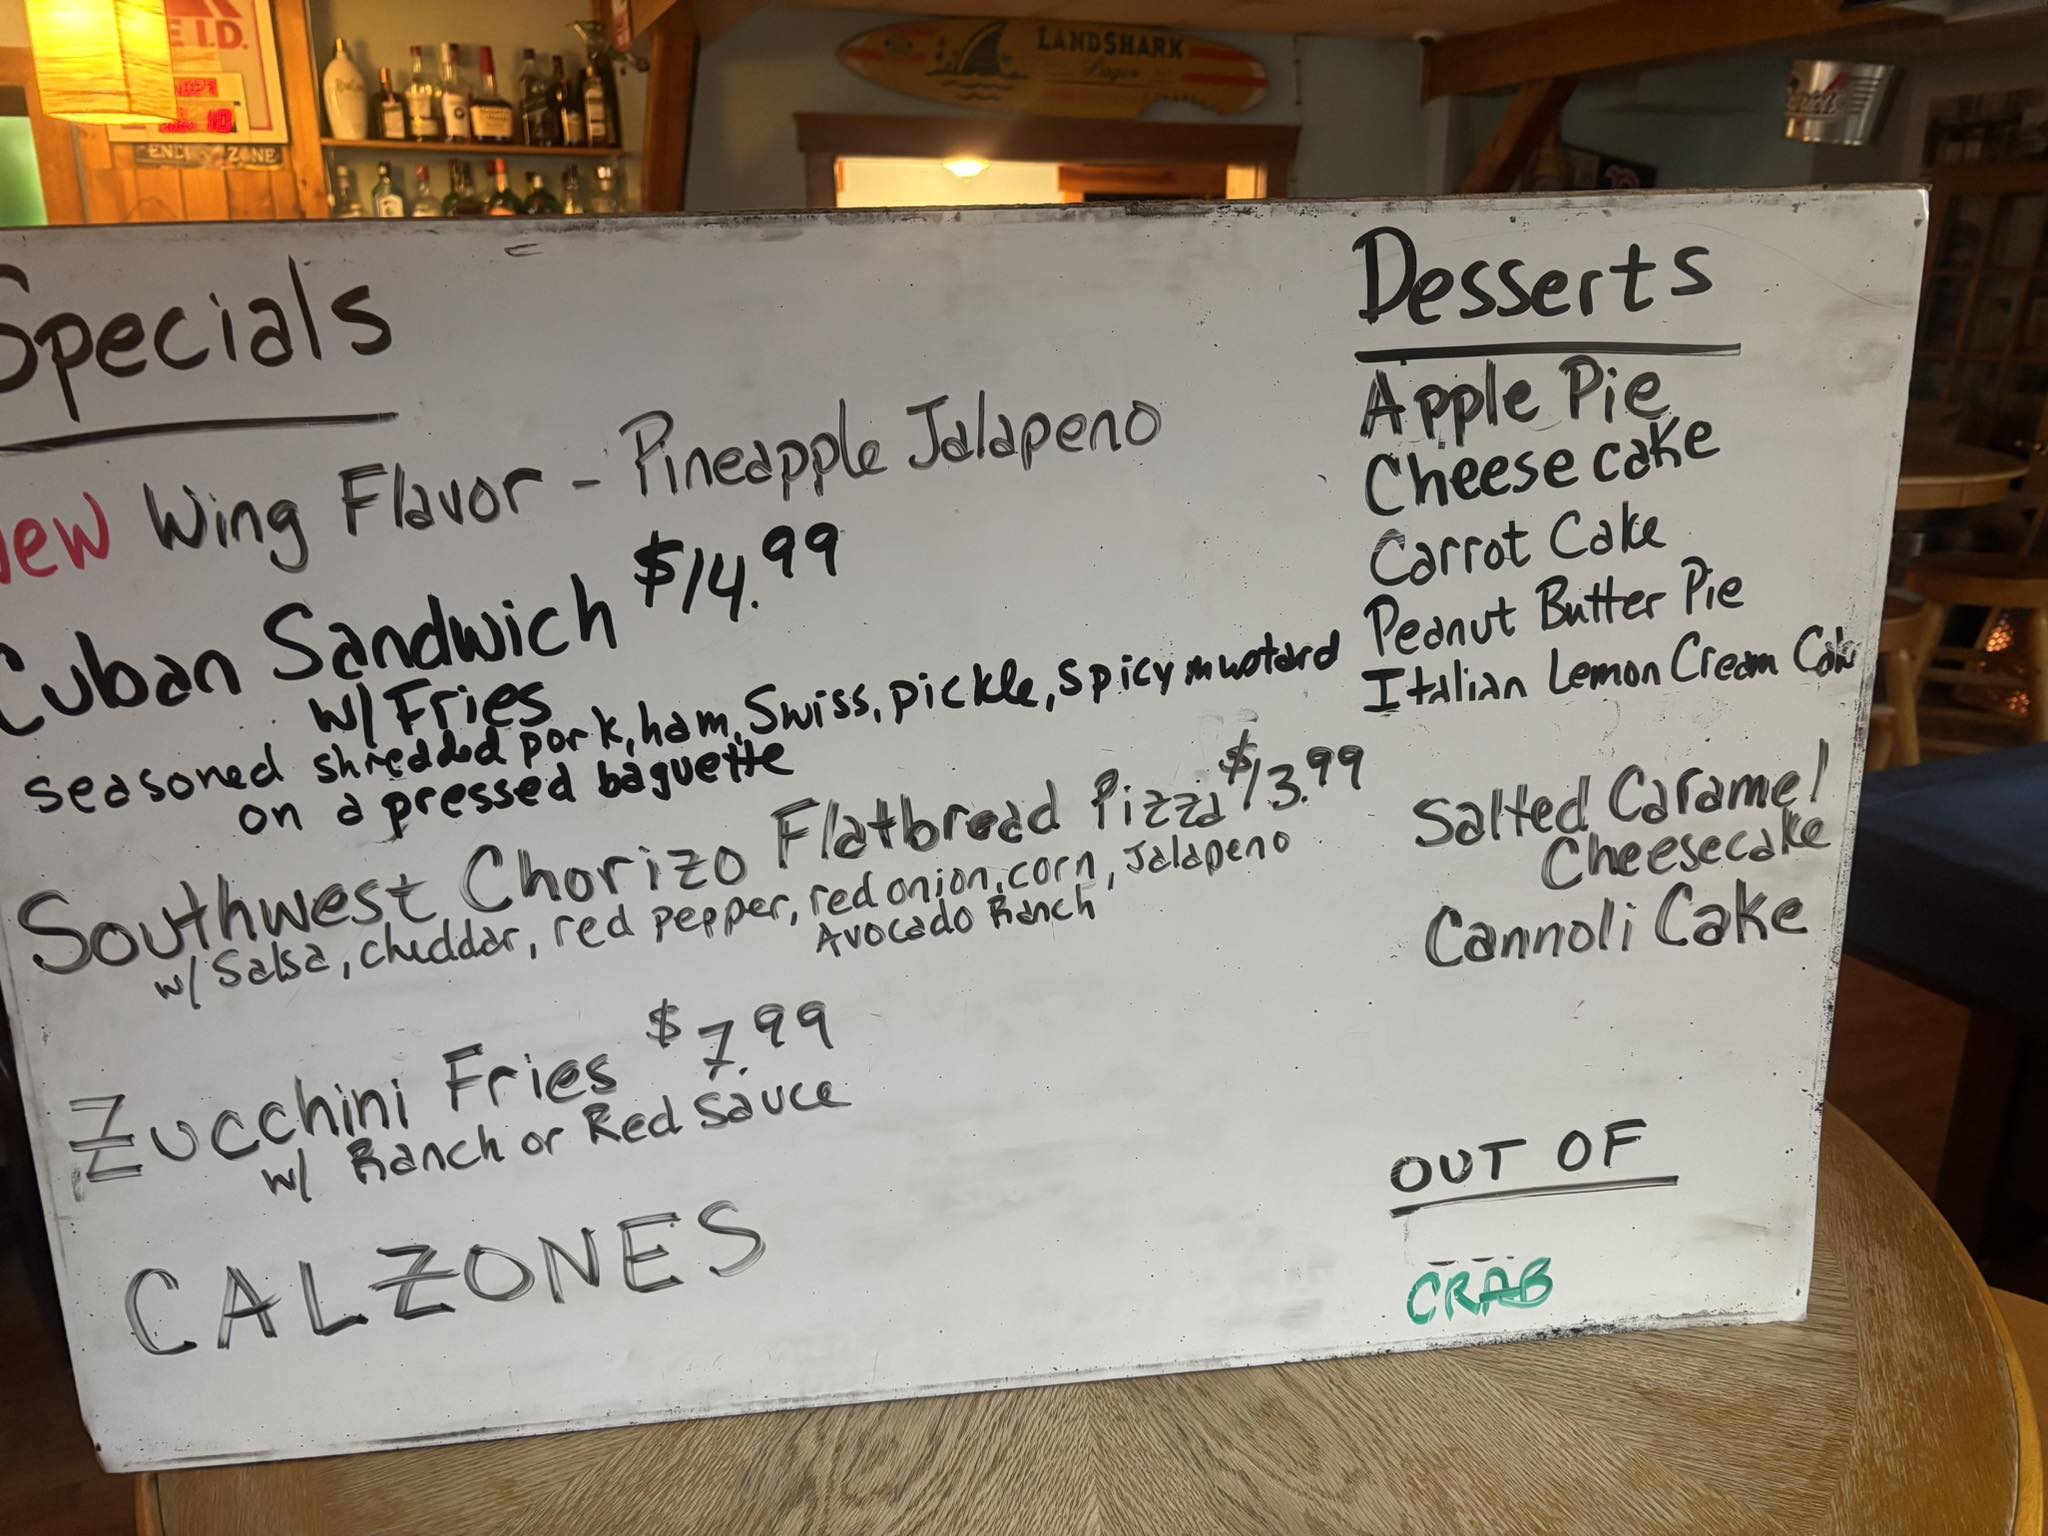 E I.D.
ENDZONE
LANDSHARK
Lager
Specials
New Wing Flavor - Pineapple Jalapeno
Cuban Sandwich $14.99
w/ Fries
seasoned shredded pork, ham, Swiss, pickle, spicy mustard
on a pressed baguette
Southwest Chorizo Flatbread Pizza $13.99
w/ Salsa, cheddar, red pepper, red onion, corn, Jalapeno
Avocado Ranch
Zucchini Fries $7.99
w/ Ranch or Red Sauce
CALZONES
Desserts
Apple Pie
Cheesecake
Carrot Cake
Peanut Butter Pie
Italian Lemon Cream Cake
Salted Caramel
Cheesecake
Cannoli Cake
OUT OF
CRAB